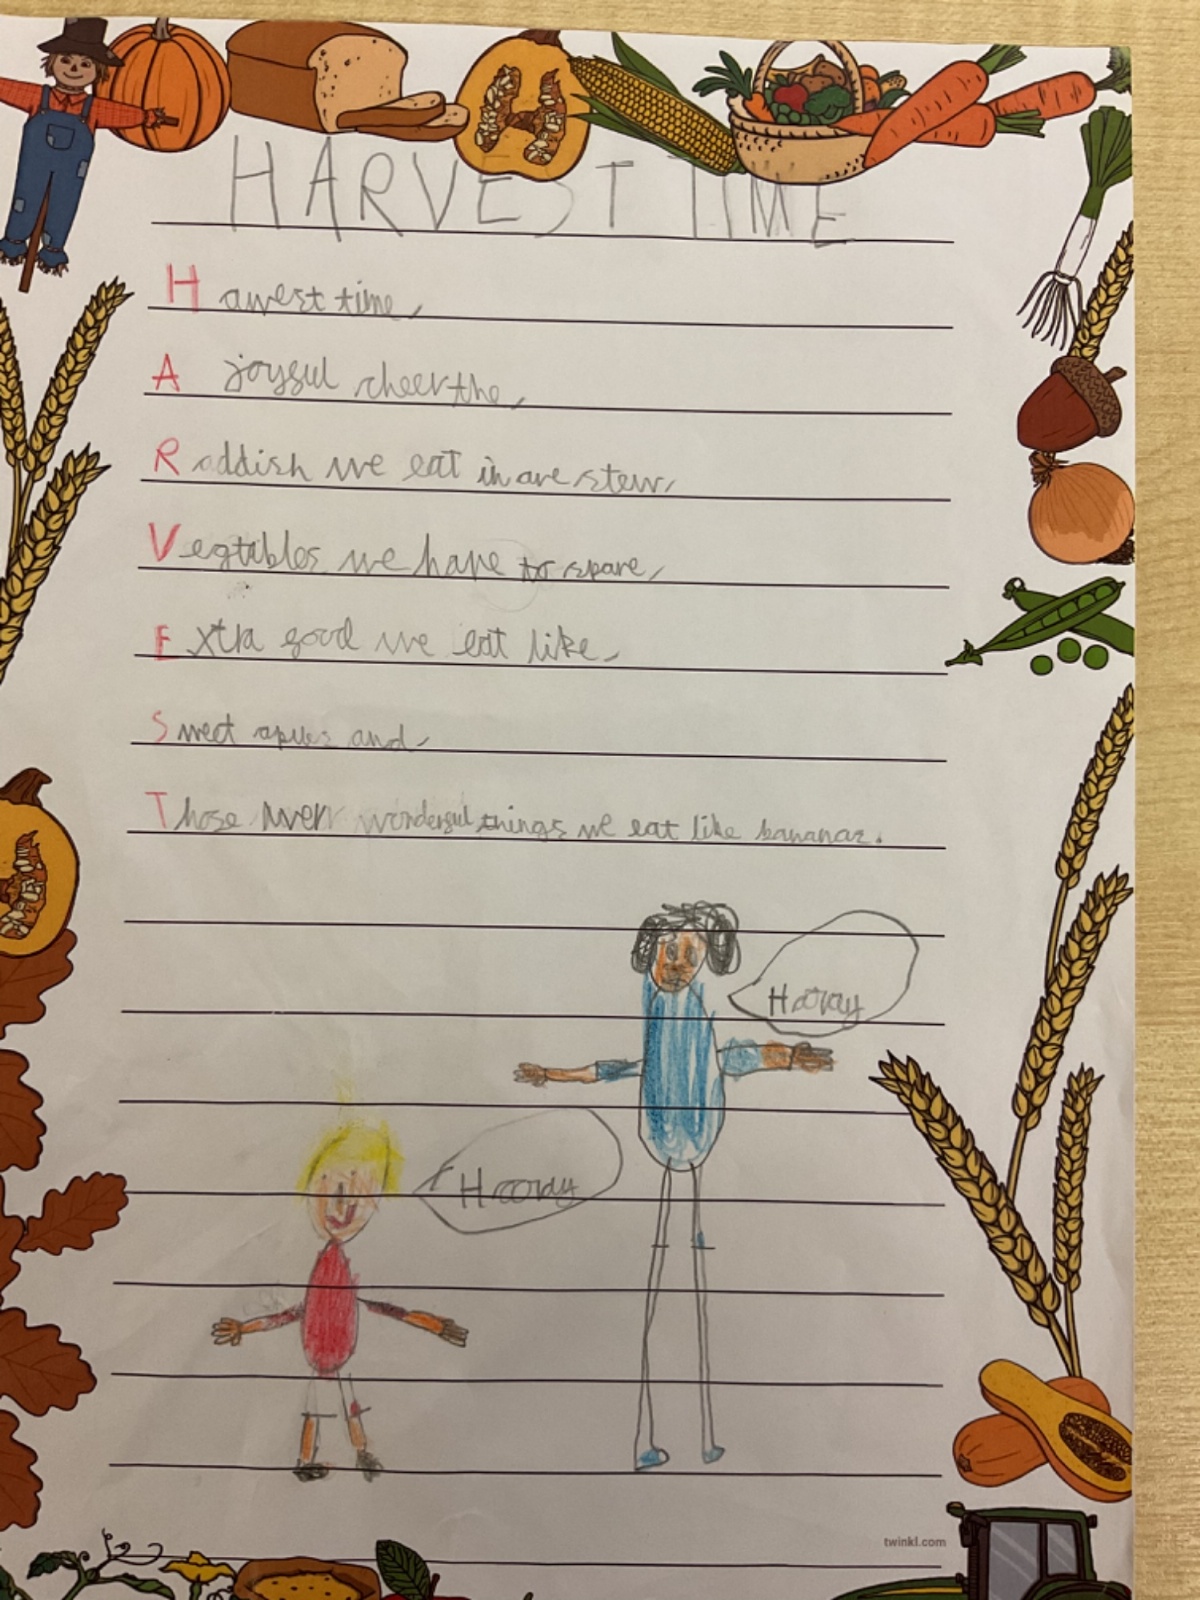 HARVEST TIME
Harvest time,
A joyful cheer the,
Raddish we eat in are stew,
Vegtables we have to spare,
Extra good we eat like,
Sweet apples and,
Those wonderful things we eat like bananas.
Hooray
Hooray
twinkl.com